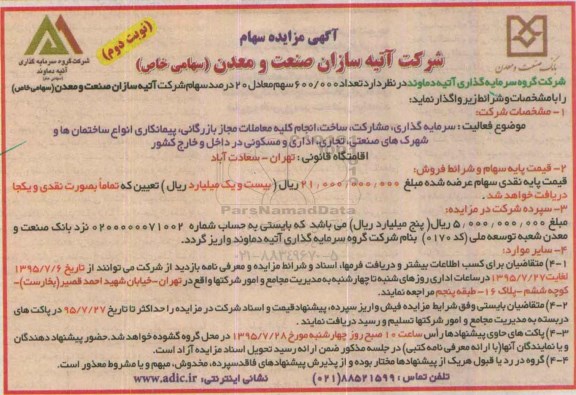 آگهی مزایده سهام
(نوبت دوم)
بانک صنعت و معدن
شرکت گروه سرمایه گذاری
آتیه دماوند
(سهامی خاص)
شرکت آتیه سازان صنعت و معدن (سهامی خاص)
شرکت گروه سرمایه گذاری آتیه دماوند در نظر دارد تعداد ۶۰۰/۰۰۰ سهم معادل ۲۰ درصد سهام شرکت آتیه سازان صنعت و معدن (سهامی خاص)
را با مشخصات و شرائط زیر واگذار نماید:
۱- مشخصات شرکت:
موضوع فعالیت : سرمایه گذاری، مشارکت، ساخت، انجام کلیه معاملات مجاز بازرگانی، پیمانکاری انواع ساختمان ها و
شهرک های صنعتی، تجاری، اداری و مسکونی در داخل و خارج کشور
اقامتگاه قانونی : تهران - سعادت آباد
۲- قیمت پایه سهام و شرائط فروش:
قیمت پایه نقدی سهام عرضه شده مبلغ ۲۱,۰۰۰,۰۰۰,۰۰۰ ریال ( بیست و یک میلیارد ریال ) تعیین که تماماً بصورت نقدی و یکجا
دریافت خواهد شد.
۳- سپرده شرکت در مزایده:
مبلغ ۵,۰۰۰,۰۰۰,۰۰۰ ریال( پنج میلیارد ریال) می باشد که بایستی به حساب شماره ۰۲۰۰۰۰۰۰۷۱۰۰۲ نزد بانک صنعت و
معدن شعبه توسعه ملی (کد ۰۱۷۰) بنام شرکت گروه سرمایه گذاری آتیه دماوند واریز گردد.
۴- سایر موارد:
۴-۱) متقاضیان برای کسب اطلاعات بیشتر و دریافت فرمها، اسناد و شرائط مزایده و معرفی نامه بازدید از شرکت می توانند از تاریخ ۱۳۹۵/۷/۶
لغایت ۱۳۹۵/۷/۲۷ در ساعات اداری روزهای شنبه تا چهارشنبه به مدیریت مجامع و امور شرکتها واقع در تهران - خیابان شهید احمد قصیر (بخارست)-
کوچه ششم - پلاک ۱۶- طبقه پنجم مراجعه نمایند.
۴-۲) متقاضیان بایستی وفق شرایط مزایده فیش واریز سپرده، پیشنهاد قیمت و اسناد شرکت در مزایده را حداکثر تا تاریخ ۹۵/۷/۲۷ در پاکت های
دربسته به مدیریت مجامع و امور شرکتها تسلیم و رسید دریافت نمایند.
۴-۳) پاکت های حاوی پیشنهادها رأس ساعت ۱۰ صبح روز چهارشنبه مورخ ۱۳۹۵/۷/۲۸ در محل گروه گشوده خواهد شد. حضور پیشنهاد دهندگان
و یا نمایندگان آنها (با ارائه معرفی نامه کتبی) در جلسه مذکور ضمن ارائه رسید تحویل اسناد مزایده آزاد است.
۴-۴) گروه در رد یا قبول هریک از پیشنهادها مختار بوده و از پذیرش پیشنهادهای فاقد سپرده، مخدوش، مبهم و یا مشروط معذور است.
تلفن تماس : ۸۸۵۲۱۵۹۹ (۰۲۱) نشانی اینترنتی: www.adic.ir
ParsNamadData
۰۲۱-۸۸۳۴۹۶۷۰-۵